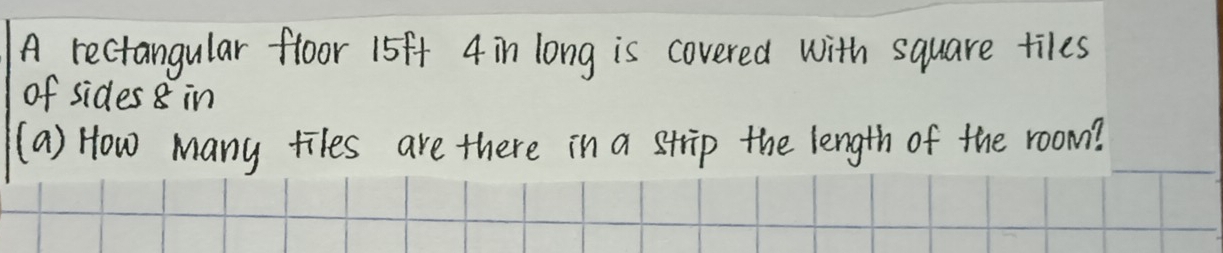 A rectangular floor 15ft 4 in long is covered with square tiles
of sides 8 in
(a) How many tiles are there in a strip the length of the room?